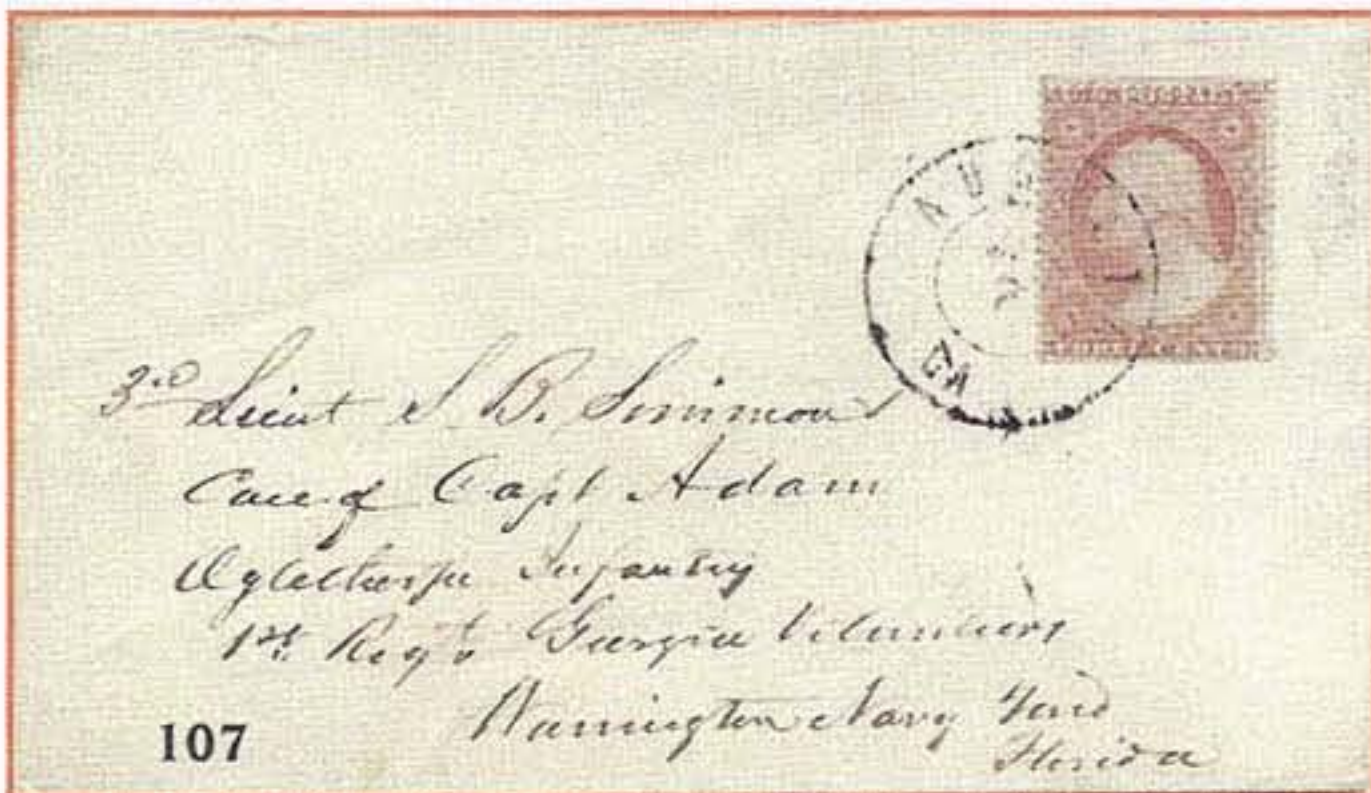 AUG
GA
3rd Lieut S B. Simmons
Care of Capt Adam
Oglethorpe Infantry
1st Regt Georgia Volunteers
Warrington Navy Yard
Florida
107